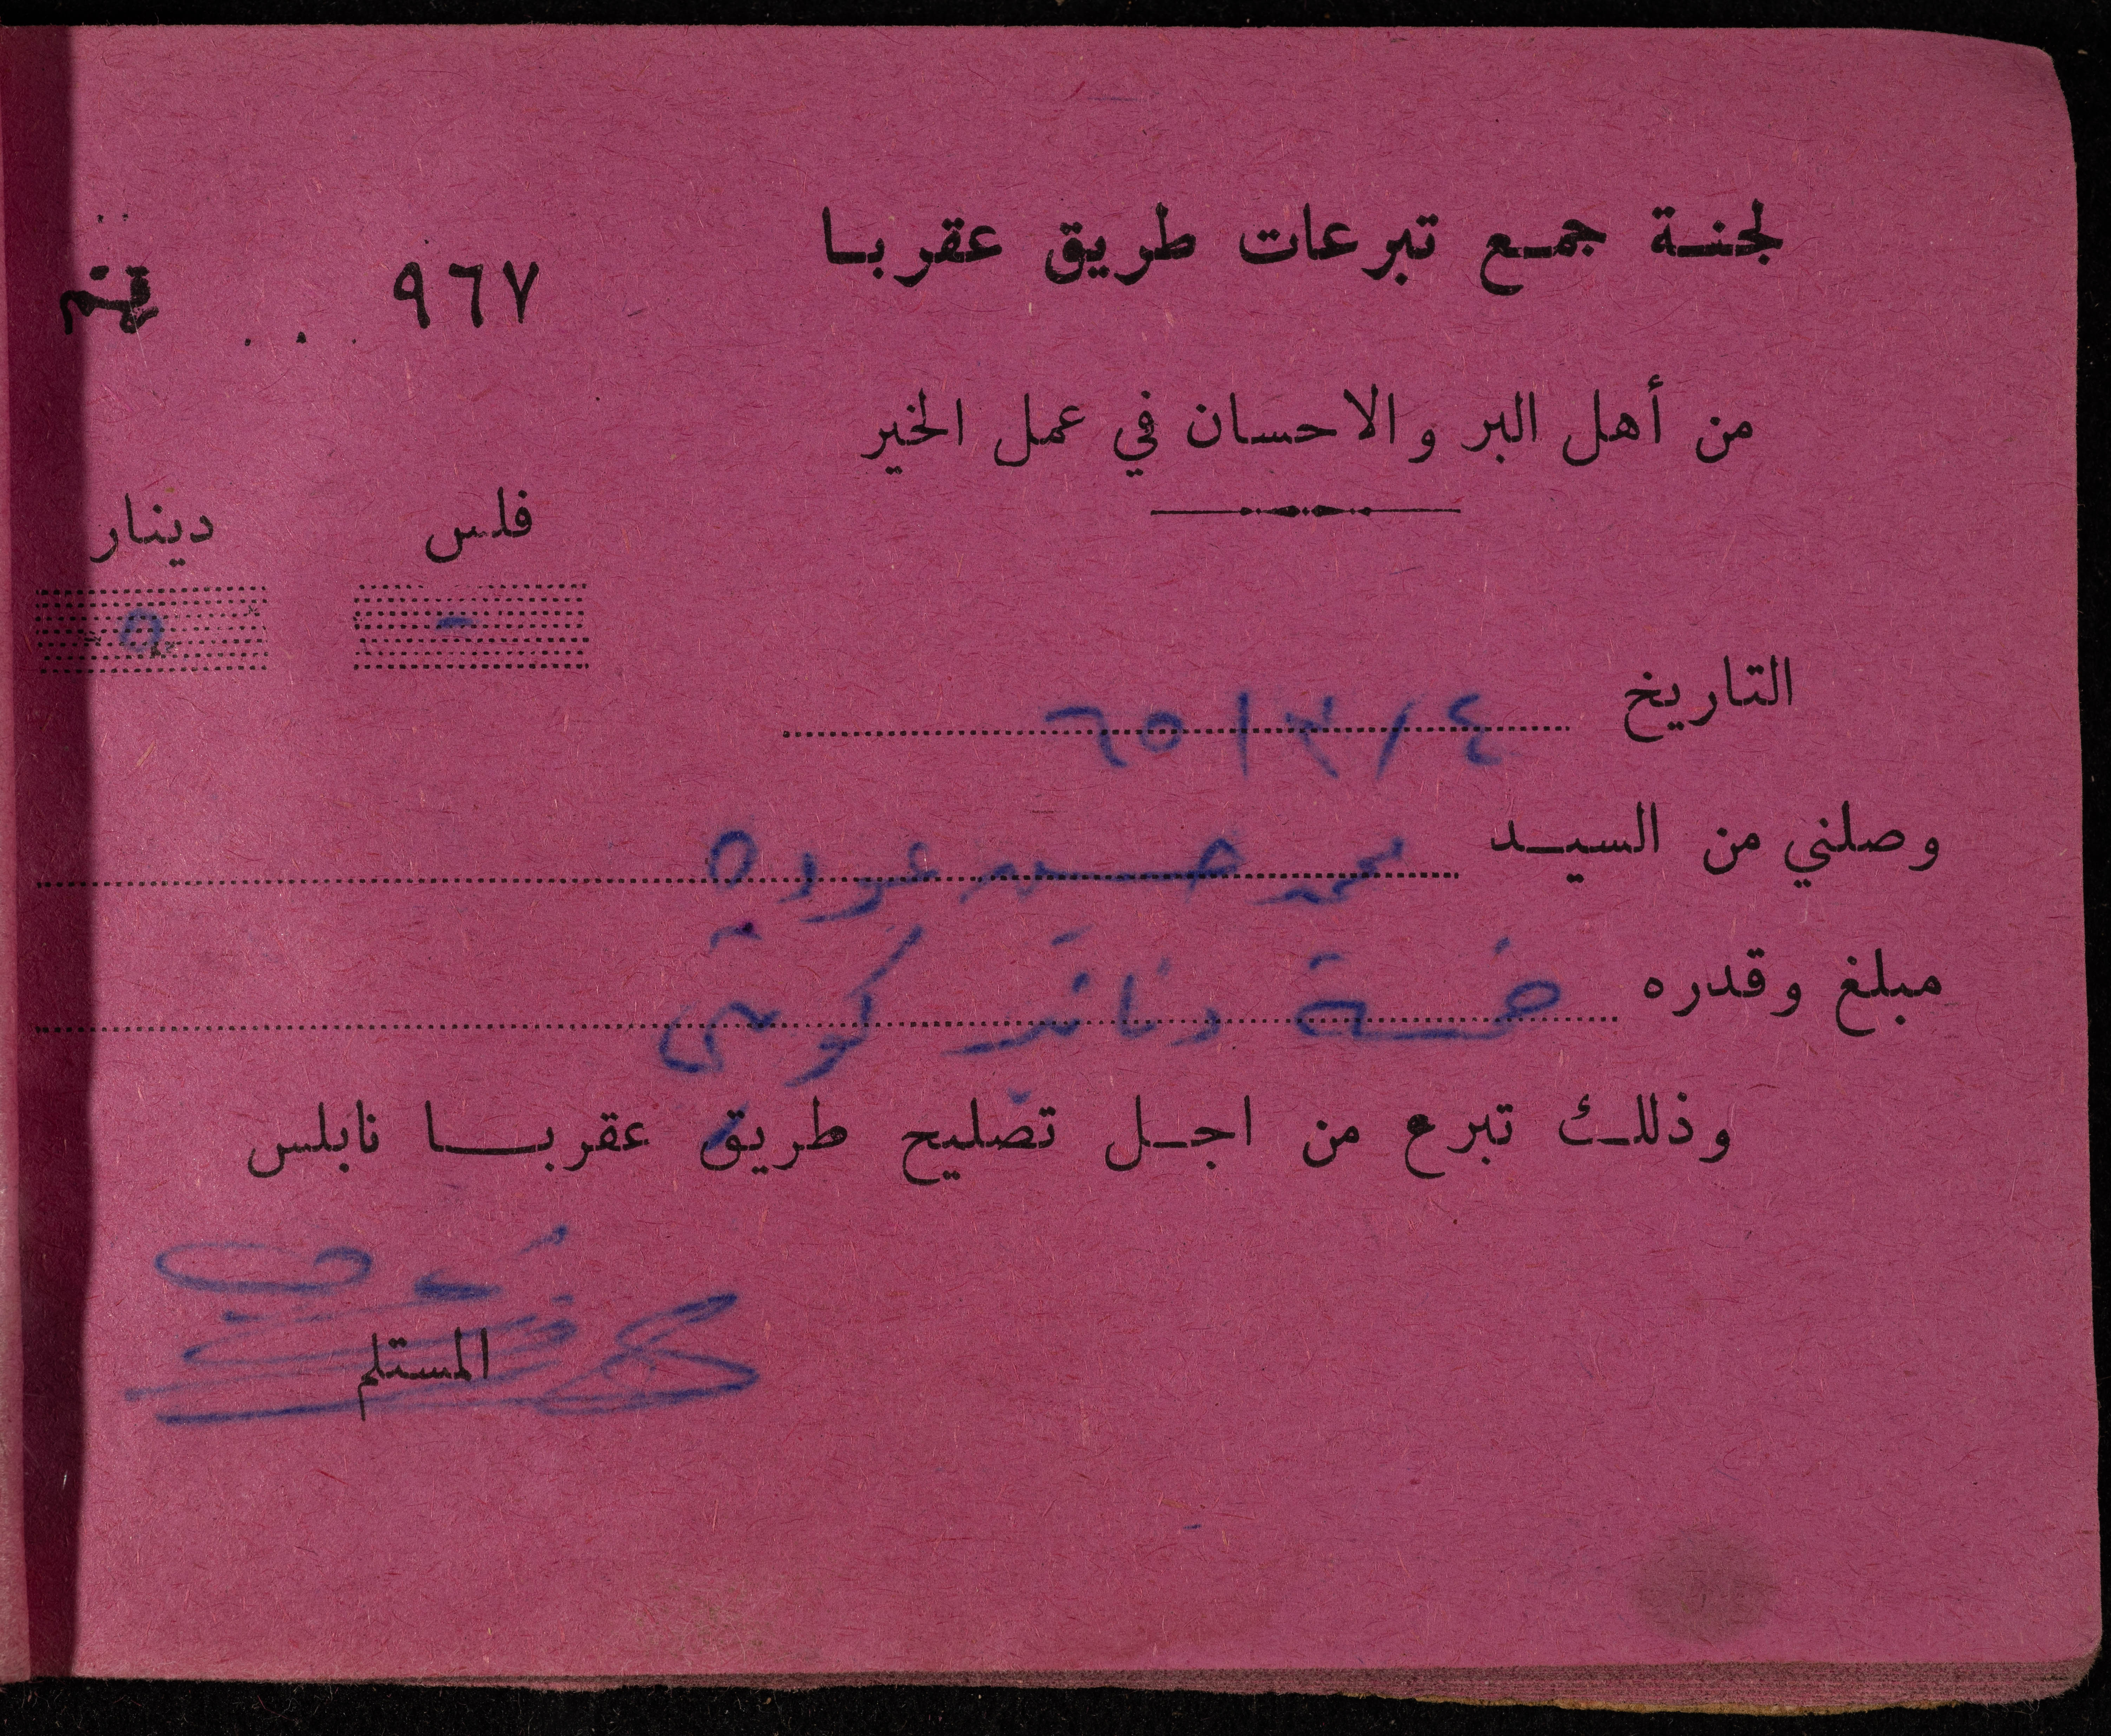 لجنة جمع تبرعات طريق عقربا
٩٦٧
من أهل البر والاحسان في عمل الخير
فلس دينار
- ٥
التاريخ ٤/٣/٦٥
وصلني من السيد محمد حسن عوده
مبلغ وقدره خمسة دنانير كويتي
وذلك تبرع من اجل تصليح طريق عقربا نابلس
المستلم